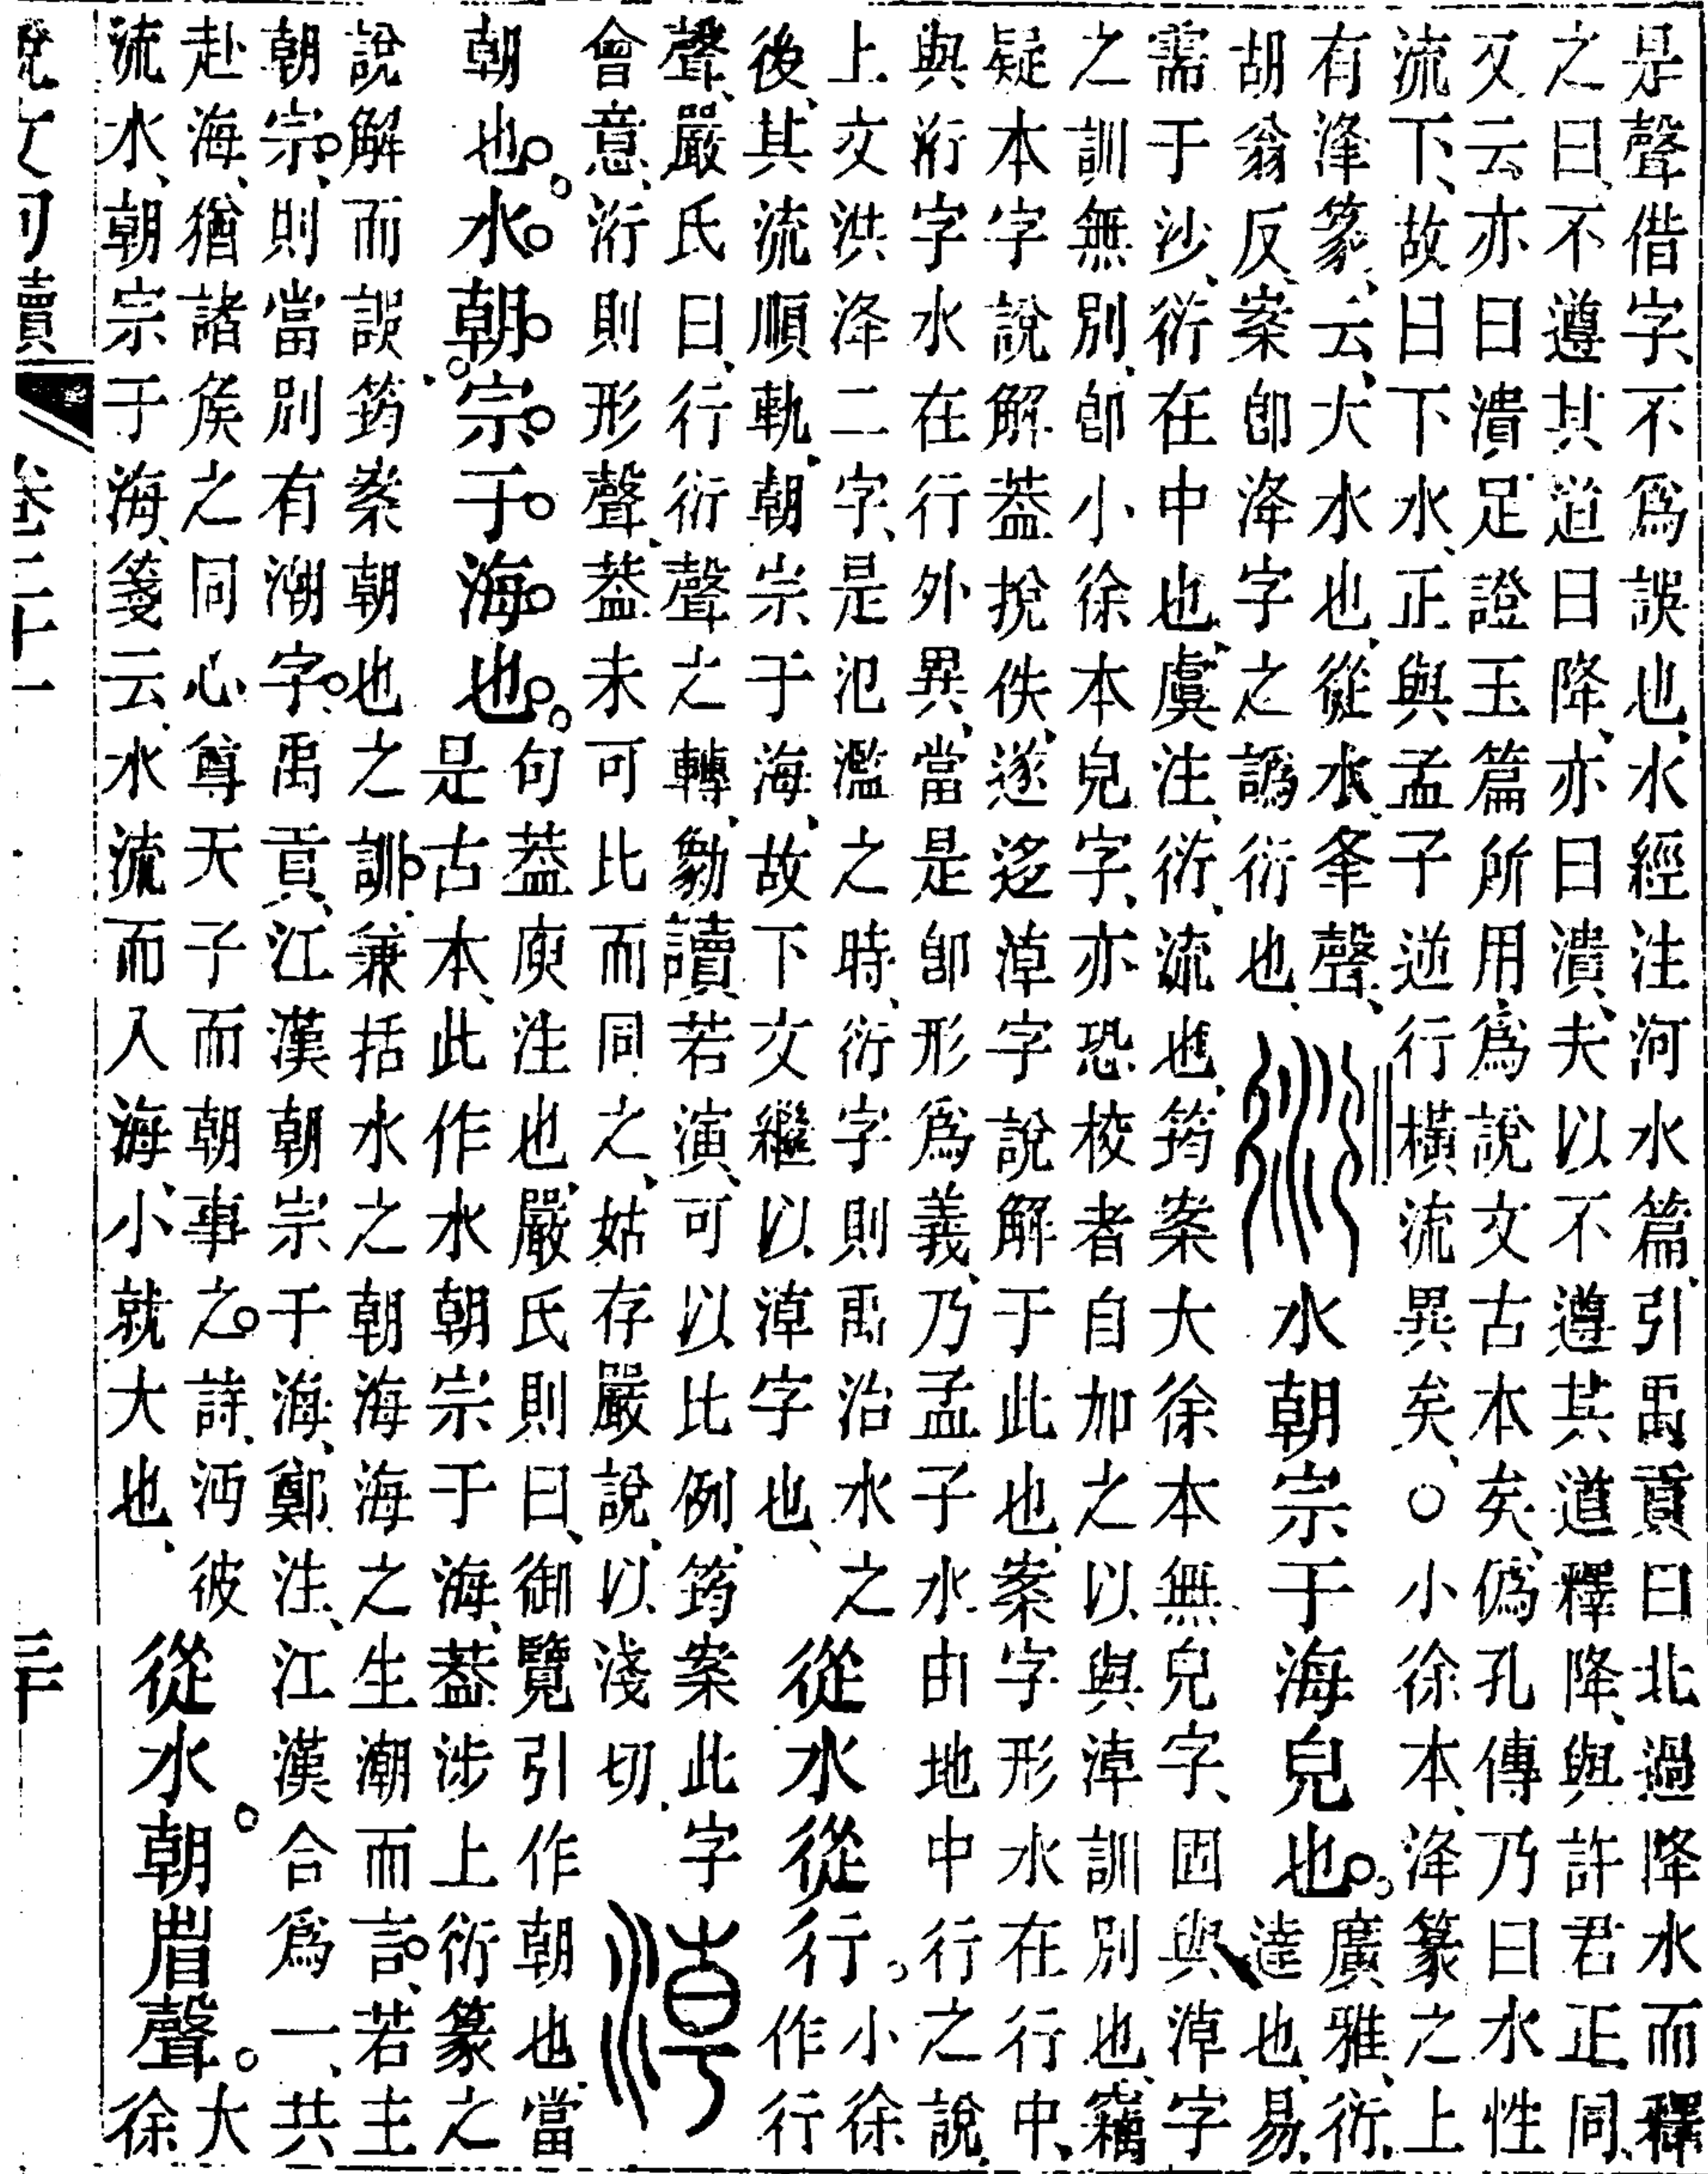 是聲借字、不爲誤也、水經注河水篇、引禹貢曰北過降水而釋
之曰、不遵其道曰降、亦曰潰、夫以不遵其道釋降、與許君正同、
又云亦曰潰、足證玉篇所用爲說文古本矣、僞孔傳乃曰水性
流下、故曰下水、正與孟子逆行橫流異矣、○小徐本、洚篆之上
有浲篆、云、大水也、從水、夆聲、
胡翁反、案卽洚字之譌衍也、
衍 水朝宗于海皃也。
廣雅、衍、
達也、易、
需于沙、衍在中也、虞注、衍、流也、筠案大徐本無皃字、固與淖字
之訓無別、卽小徐本皃字、亦恐校者自加之以與淖訓別也、竊
疑本字說解蓋挩佚、遂迻淖字說解于此也、案字形水在行中、
與洐字水在行外異、當是卽形爲義、乃孟子水由地中行之說、
上文洪洚二字、是氾濫之時、衍字則禹治水之
後、其流順軌、朝宗于海、故下文繼以淖字也、
從水從行。
小徐
作行
聲、嚴氏曰、行衍聲之轉、勨讀若演、可以比例、筠案此字
會意、洐則形聲、蓋未可比而同之、姑存嚴說、以淺切、
淖
朝也。水朝宗于海也。
句蓋庾注也、嚴氏則曰、御覽引作朝也、當
是古本、此作水朝宗于海、蓋涉上衍篆之
說解而誤、筠案朝也之訓。兼括水之朝海海之生潮而言。若主
朝宗、則當別有潮字。禹貢、江漢朝宗于海、鄭注、江漢合爲一、共
赴海、猶諸侯之同心尊天子而朝事之。詩、沔彼
流水、朝宗于海、箋云、水流而入海、小就大也、
從水。朝省聲。
大
徐
說文句讀 卷二十一 三十